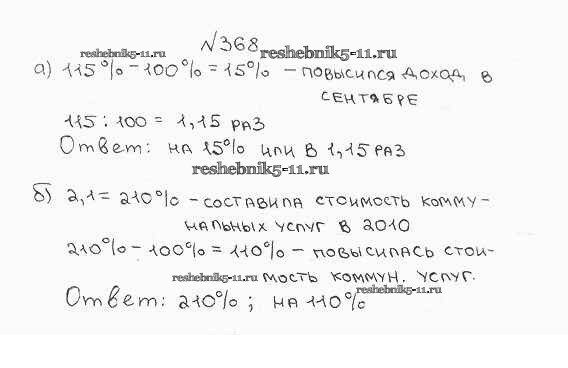 №368
reshebnik5-11.ru reshebnik5-11.ru
а) 115% - 100% = 15% - повысился доход в
сентябре
115 : 100 = 1,15 раз
Ответ: на 15% или в 1,15 раз
reshebnik5-11.ru
б) 2,1 = 210% - составила стоимость комму-
нальных услуг в 2010
210% - 100% = 110% - повысилась стои-
reshebnik5-11.ru мость коммун. услуг.
reshebnik5-11.ru
Ответ: 210% ; на 110%